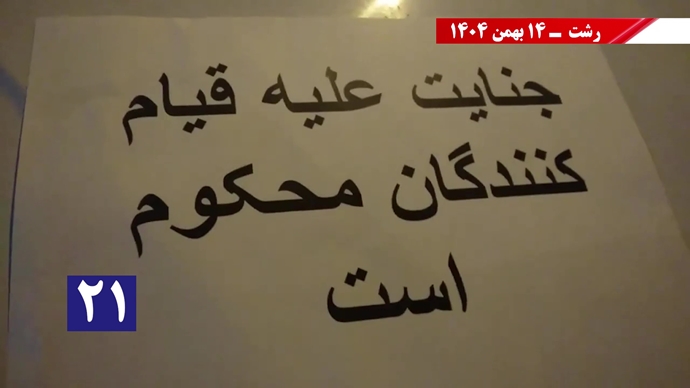 رشت ــ ۱۴ بهمن ۱۴۰۴
جنایت علیه قیام
کنندگان محکوم
است
۲۱